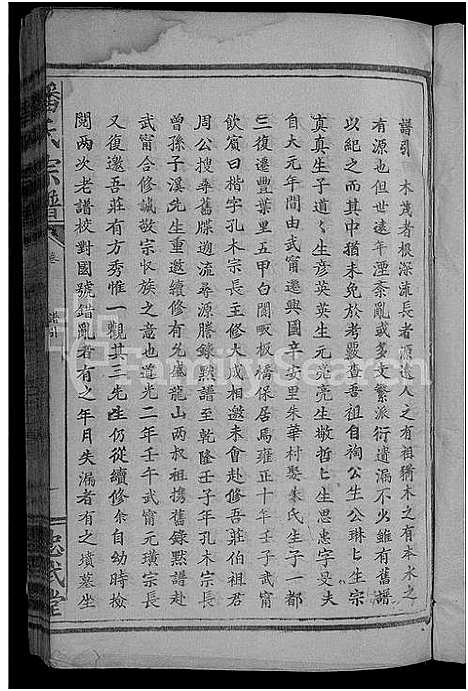 譜引　木茂者根深流長者源遠人之有祖猶木之有本水之
有源也但世遠年湮紊亂或多文繁派衍遺漏不火雖有舊譜
以紀之而其中猶未免於考覈查吾祖自祹公生公琳匕生宗
真真生子道匕生彥英英生元亮亮生敬哲匕生思惠字旻夫
自大元年間由武甯遷興國辛安里朱華村娶朱氏生子一都
三復遷豐葉里五甲白閭畈板橋保居焉雍正十年壬子武甯
飲賓曰楷字孔木宗長主修大成相邀未會赴修吾莊伯祖君
周公搜尋舊牒遡流尋源謄錄黙譜至乾隆壬子年孔木宗長
曾孫子漢先生重邀續修有允盛龍山兩叔祖携舊錄黙譜赴
武甯合修誠敬宗收族之意也道光二年壬午武甯元璜宗長
又復邀吾莊有方秀惟一觀其三先生仍從續修余自幼時檢
閱兩次老譜校對國號錯亂者有之年月失漏者有之墳墓坐
潘氏宗譜
卷
譜引
一
忠武堂
FamilySearch